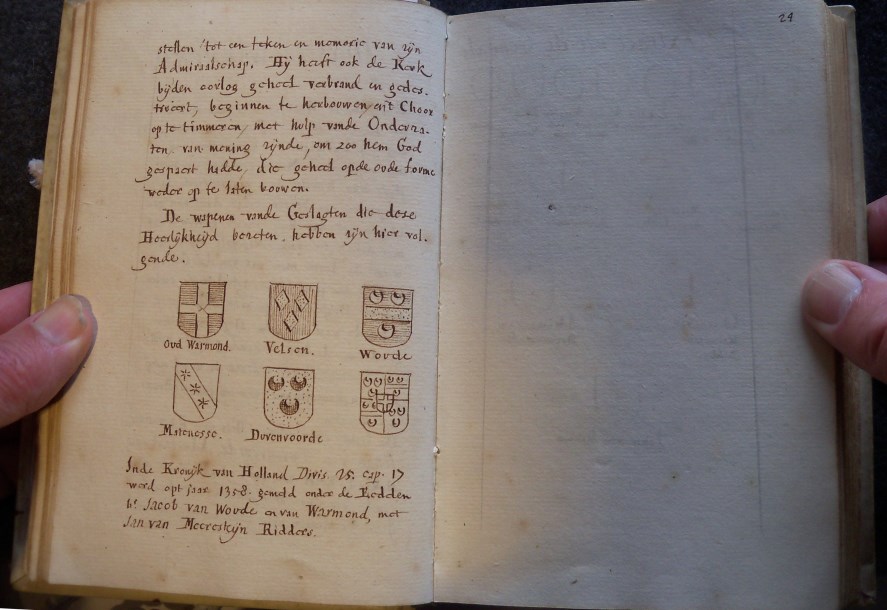 stellen tot een teken en memorie van zijn
Admiraalschap. Hy heeft ook de Kerk
byden oorlog geheel verbrand en gedes-
trueert, beginnen te herbouwen, en't Choor
op te timmeren, met hulp vande Onderza-
ten van mening zijnde, om zoo hem God
gespaert hadde, die geheel opde oude forme
weder op te laten bouwen.
De wapenen vande Geslagten die dese
Heerlijkheijd bezeten, hebben zijn hier vol-
gende.
Oud Warmond. Velsen. Woude
Matenesse. Duvenvoorde
Inde Kronijk van Holland Divis. 25. cap. 17
werd opt jaar 1358. gemeld onder de Edelen
Hr. Jacob van Woude en van Warmond, met
Jan van Meeresteyn Ridders.
24